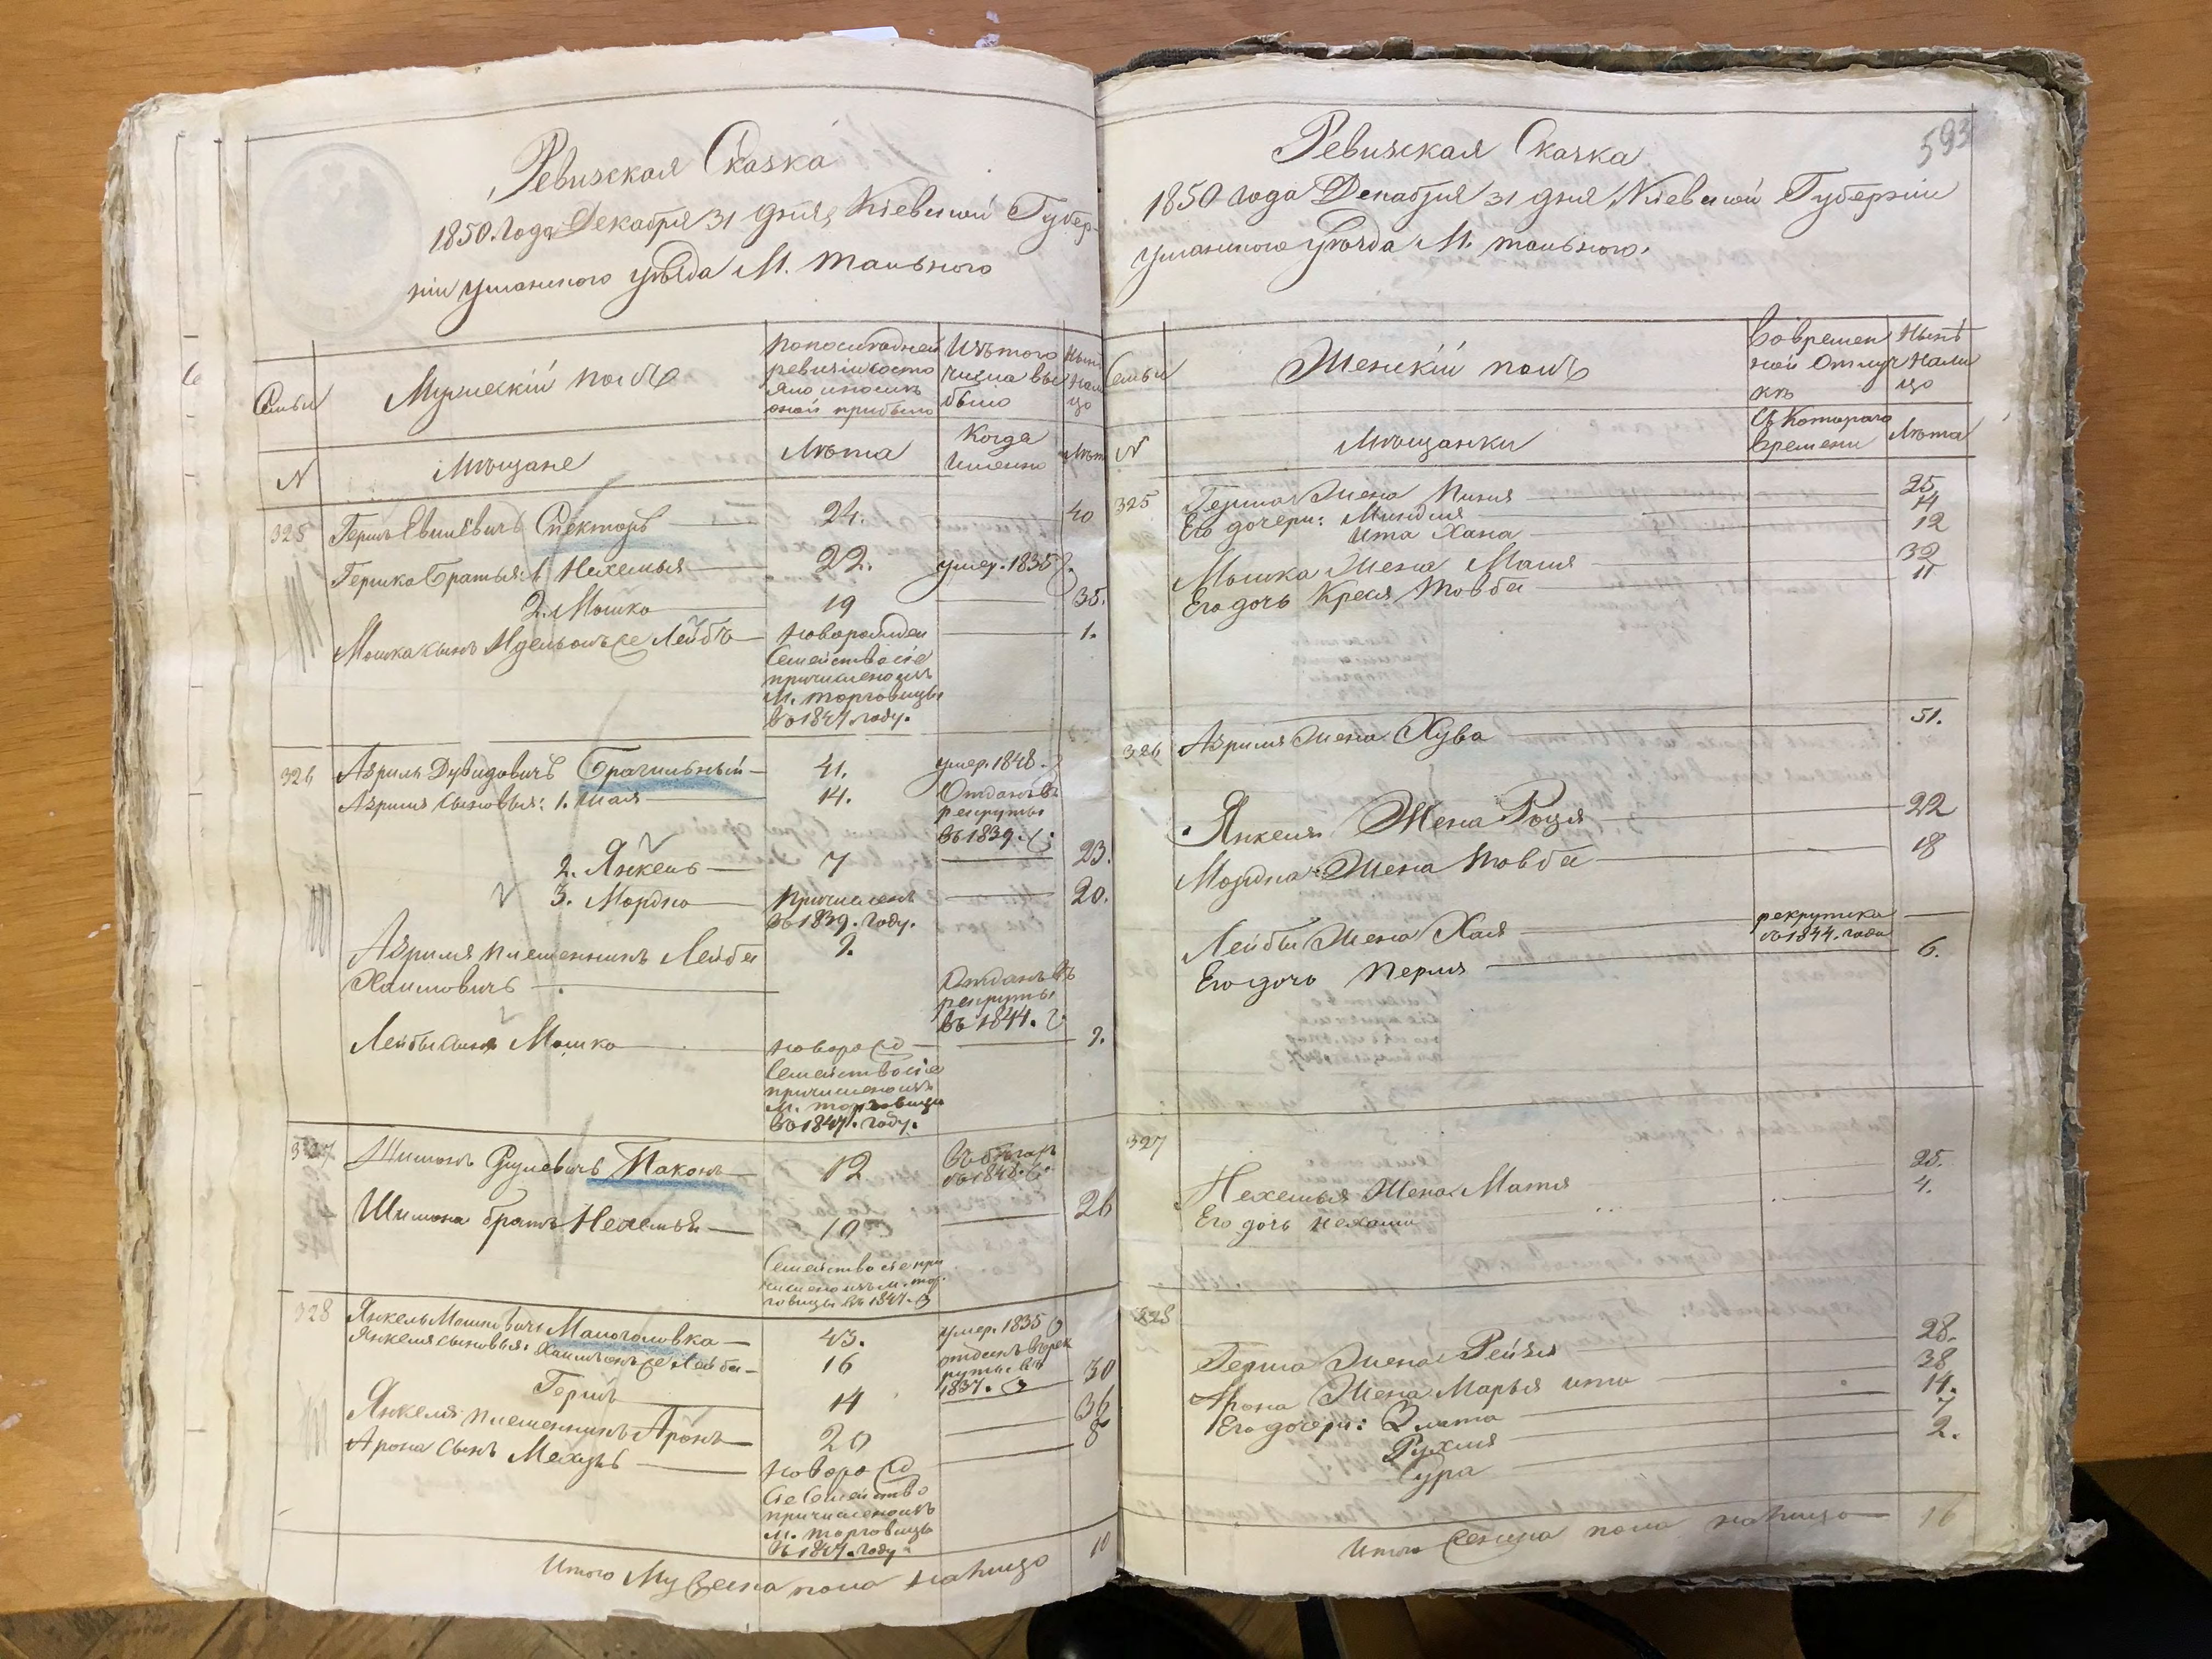 Ревизская Сказка
1850. года Декабря 31 дня, Кіевской Губер-
ніи Уманского уѣзда М. Тального
Семьи
Мужескій полъ
По последней
ревизіи состо
яло и после
оной прибыло
Изъ того
числа вы
было
Нынѣ
нали
цо
N
Мѣщане
Лѣта
Когда
Именно
Лѣта
325
Гершъ Евшіевичъ Спекторъ
24.
40
Гершка братья: 1 Нехемья
22.
умер. 1835
2. Мошко
19
35.
Мошка сынъ Идель онъ же Лейбъ
новорожден
1.
Семейство сіе
причислено изъ
М. Торговицы
въ 1847 году.
326
Азриль Дувидовичъ Брагильный
41.
умер. 1848.
Азриля сыновья: 1. Шая
14.
Отданъ въ
рекруты
въ 1839.
2. Янкель
7
23.
3. Мордко
Причисленъ
въ 1839. году.
20.
Азриля племенникъ Лейба
Хаимовичъ
9.
Отданъ въ
рекруты
въ 1844.
Лейбы сынъ Мошко
новоро жд
9.
Семейство сіе
причислено изъ
М. Торговицы
въ 1847. году.
327
Шимонъ Сруліевичъ Паконъ
12
въ бѣгах
въ 1848.
Шимона братъ Нехемья
10
26
Семейство сіе при
числено изъ М. Тор
говицы въ 1847.
328
Янкель Мошковичъ Малоголовка
43.
умер. 1835
Янкеля сыновья: Хаимъ онъ же Лейба
16
отданъ в рек
руты въ
1837.
Гершъ
14
30
Янкеля племенникъ Аронъ
20
36
Арона сынъ Мехель
новоро жд
8
Сіе Семейство
причислено изъ
М. Торговицы
въ 1847. году
Итого Мужеска пола налицо
10
593
Ревизская Сказка
1850 года Декабря 31 дня, Кіевской Губерніи
Уманского Уѣзда М. Тального.
Семьи
Женскій полъ
Во времен
ной отлуч
кѣ
Нынѣ
нали
цо
N
Мѣщанки
Съ Котораго
времени
Лѣта
325
Герша Жена Песия
25
Его дочери: Миндля
14
Ита Хана
12
Мошка Жена Маля
32
Его дочь Крейся Товба
11
326
Азриля Жена Хува
51.
Янкеля Жена Рося
22
Мордка Жена Товба
18
Лейбы Жена Хая
рекрутка
съ 1844. года
Его дочь Перля
6.
327
Нехемья Жена Матя
25.
Его дочь Нехама
4.
328
Герша Жена Рейзя
28.
Арона Жена Марья Ита
38
Его дочери: Злата
14.
Рухля
7
Сура
2.
Итого Женска пола налицо
16